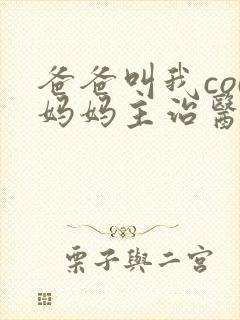 爸爸叫我co
妈妈主治醫
栗子與二宮